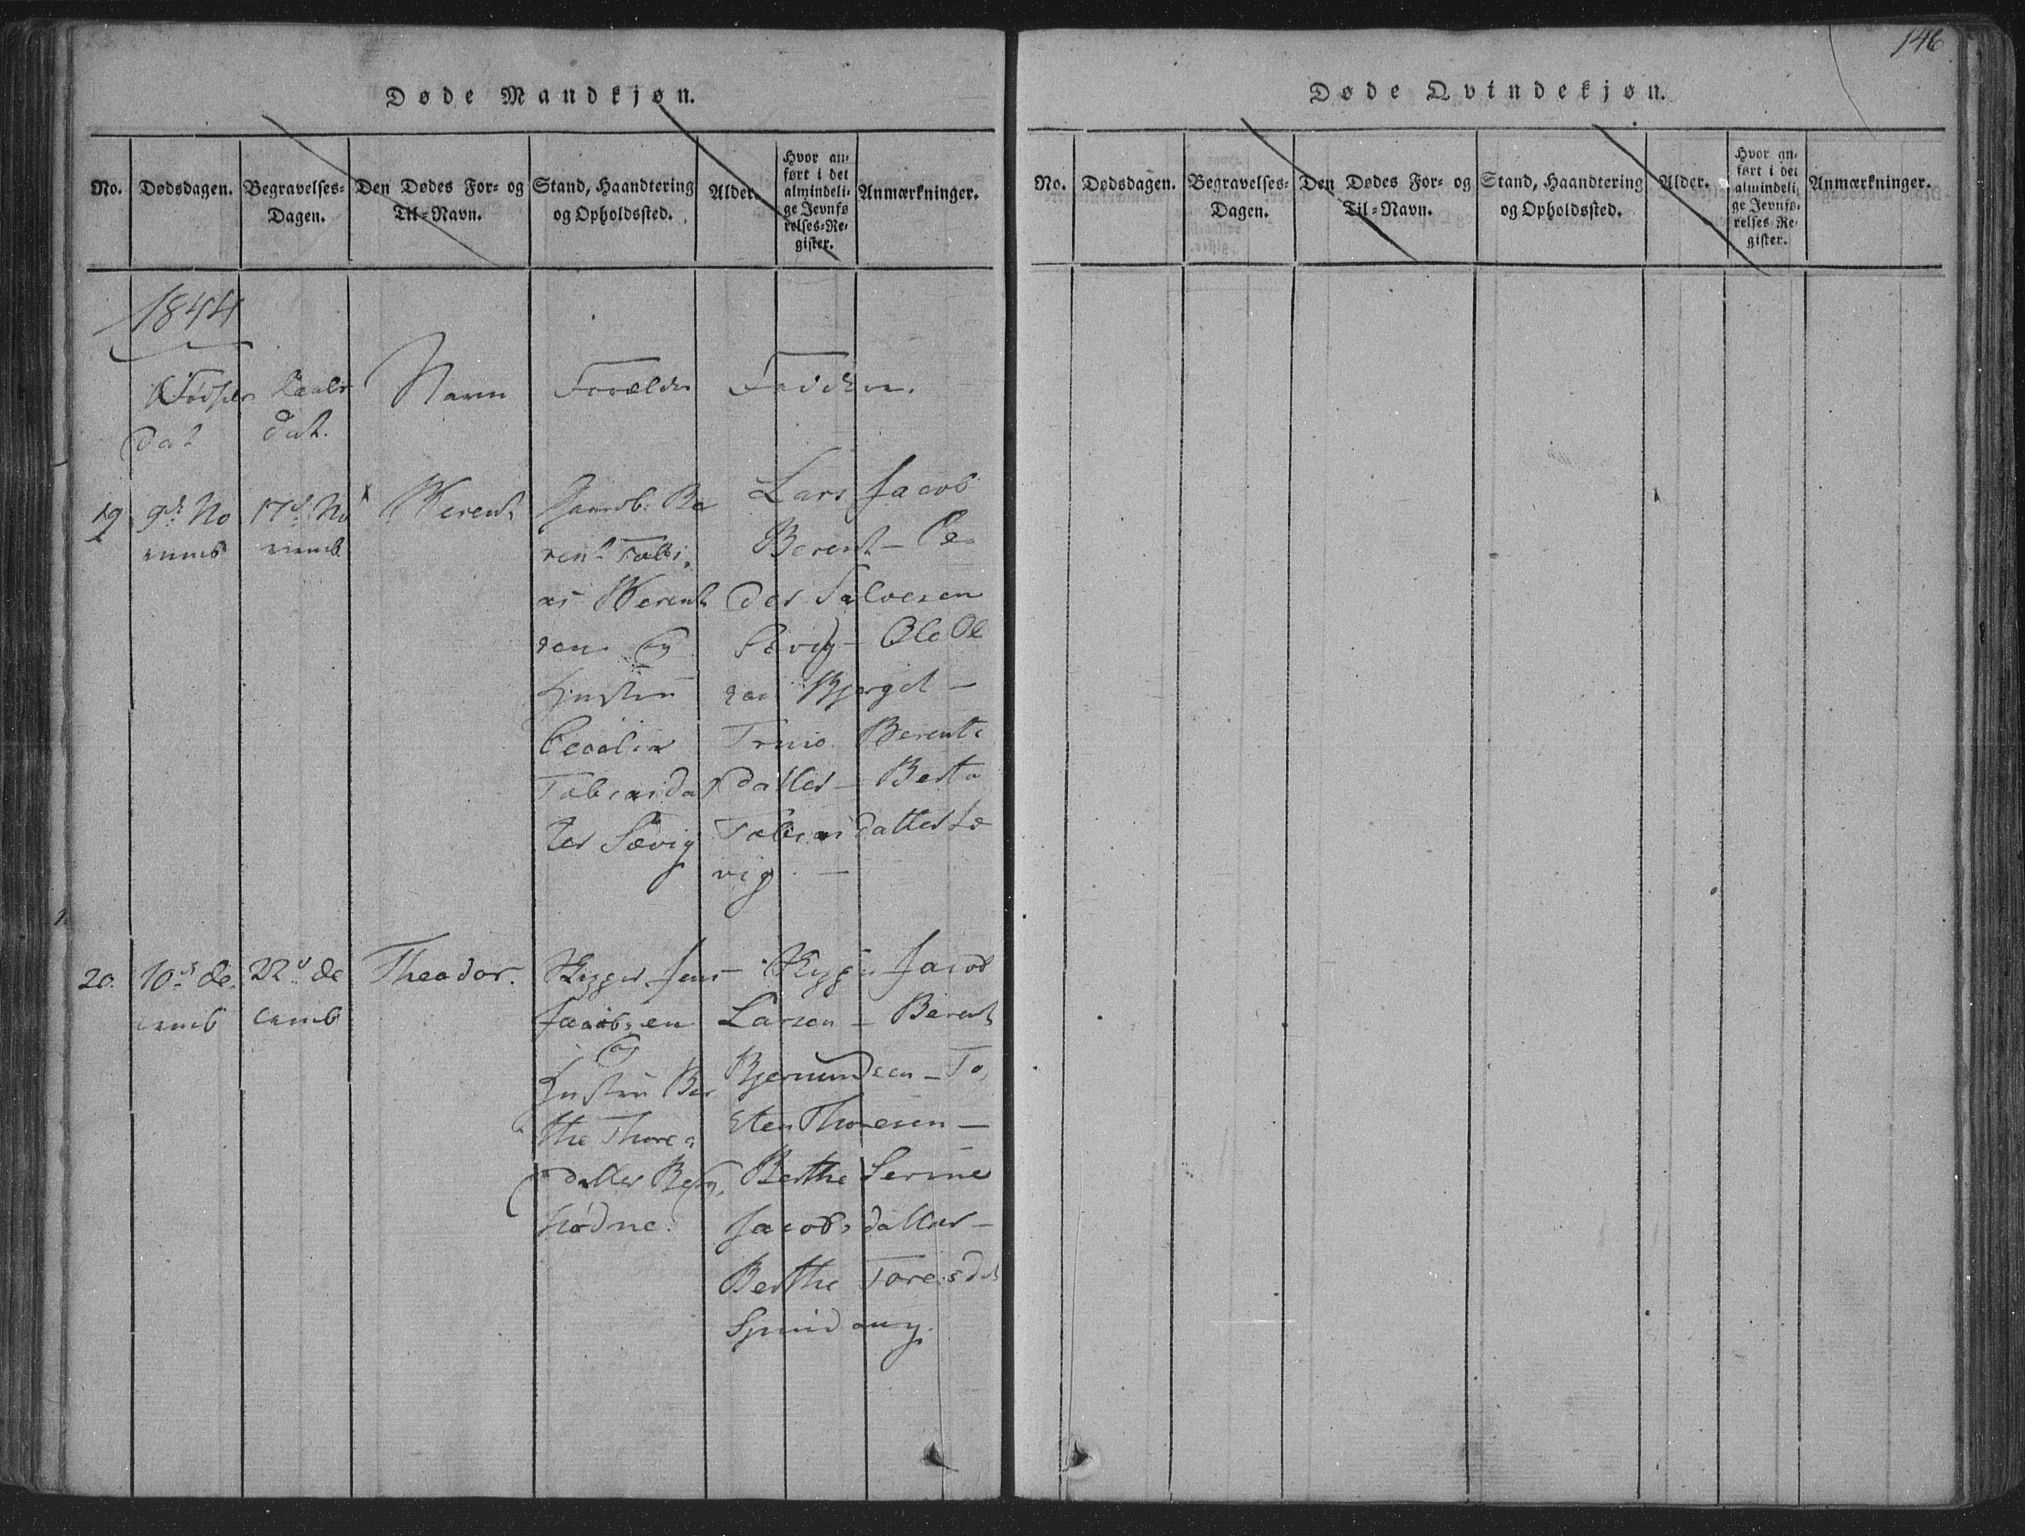 146
Døde Mandkjøn.
No. Dødsdagen. Begravelses-Dagen. Den Dødes For- og Til-Navn. Stand, Haandtering og Opholdssted. Alder. Hvor anført i det almindelige Jevnførelses-Register. Anmærkninger.
1844
Fødsels dat
dat.
Navn
Forældre
Faddere.
19
9de Novemb
17de Novemb
Berent
Jacob Be
rent Tobi
as Berent
sen og
Hustru
Cecilia
Tobiasdat
ter Sævig
Lars Jacob
Berent – Pe
der Salvesen
Sævig – Ole Ol
sen Bjerget –
Trine Berents
datter – Berta
Tobias datter Sæ
vig. –
20.
10de de
cemb
22de de
cemb
Theodor.
Jens
Jacobsen
og
Hustru Ber
the Thores
datter
Jacob
Larsen – Berent
Bjernundsen – To
sten Thoresen –
Berthe Serine
Jacobsdatter –
Berthe Toresdt
Døde Qvindekjøn.
No. Dødsdagen. Begravelses-Dagen. Den Dødes For- og Til-Navn. Stand, Haandtering og Opholdssted. Alder. Hvor anført i det almindelige Jevnførelses-Register. Anmærkninger.